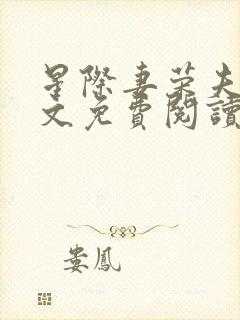 星際妻榮夫
文免費閱讀
婁鳳